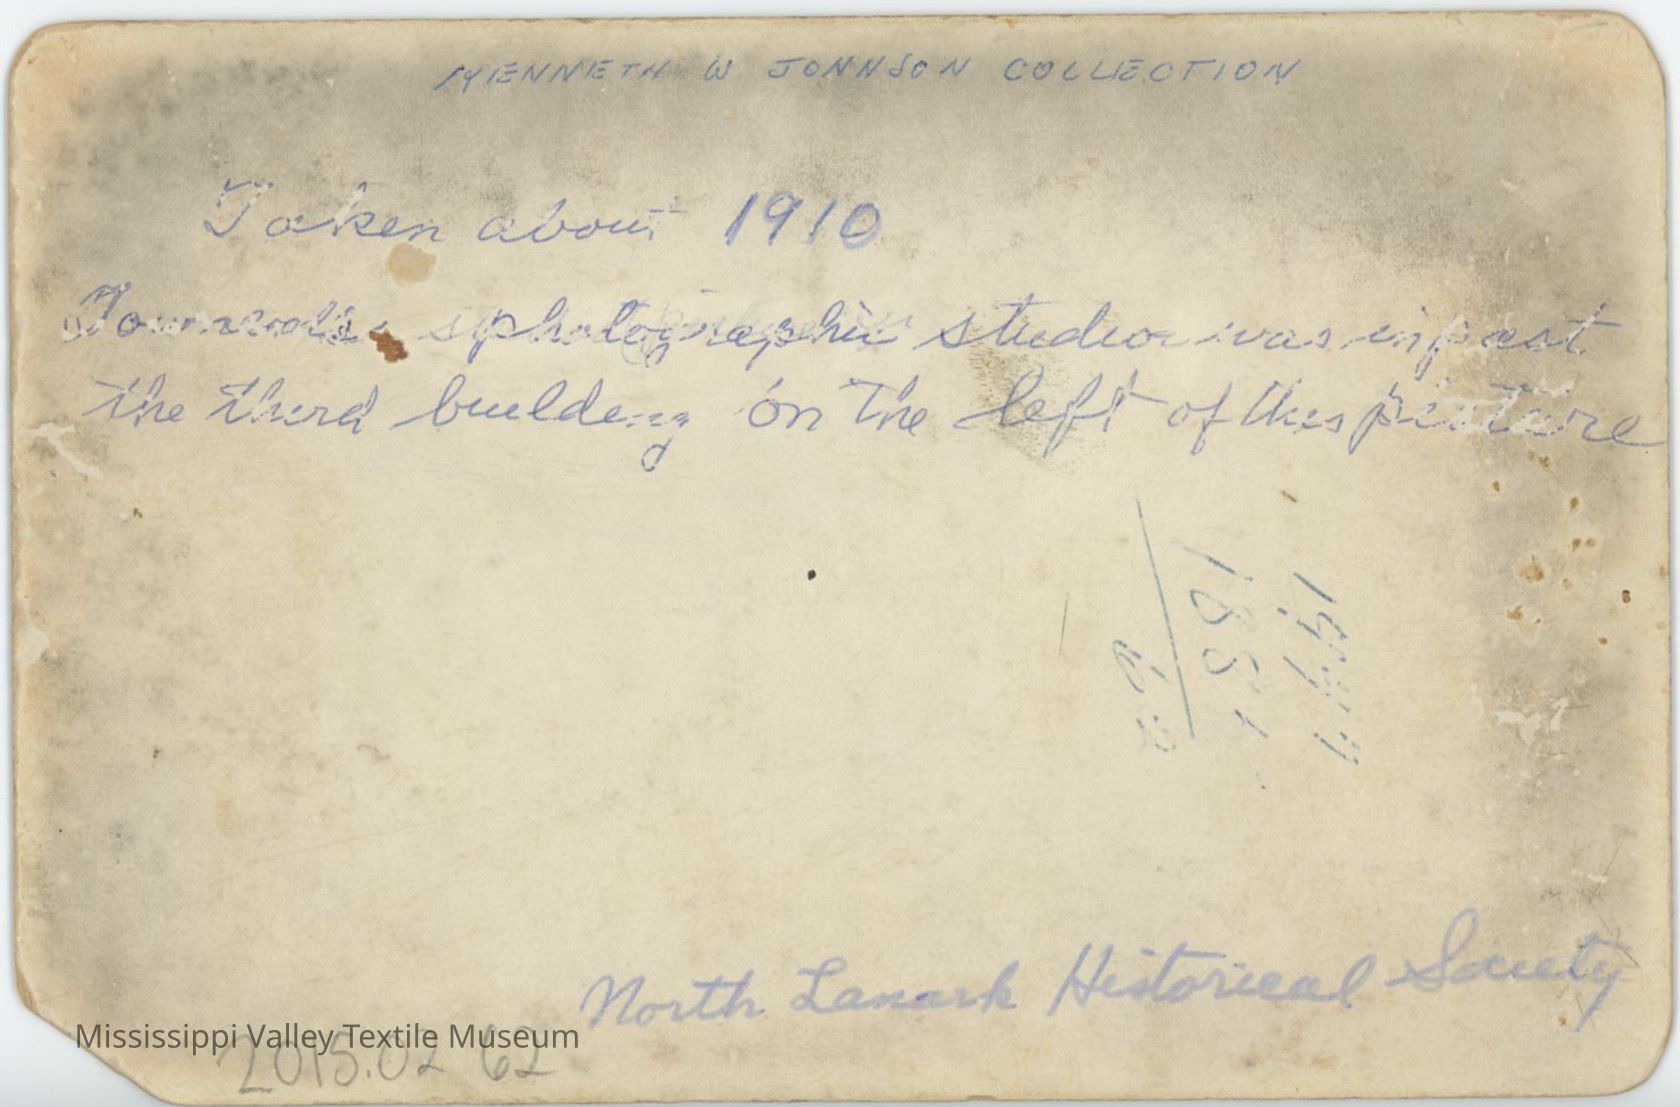 KENNETH W JOHNSON COLLECTION
Taken about 1910
photographic studio was in part
the third building on the left of this picture
1881
North Lanark Historical Society
Mississippi Valley Textile Museum
2015.02 62